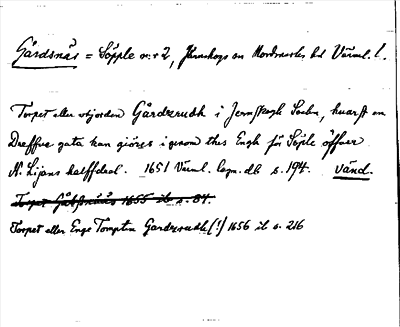 Gårdsnäs = Söpple nr 2, Järnskogs sn Nordmarks hd Värml. l.
Torpet eller utjorden Gårdzrudh i Jernskogh Sochn, huarst en
Dreffue gata kan giöres igenom thes Engh för Söple öffuer
N. Lijans halffdeel. 1651 Värml. lagm. db s. 194. Vänd.
Torpet eller Enge Tompten Gardzrudh (!) 1656 ib s. 216